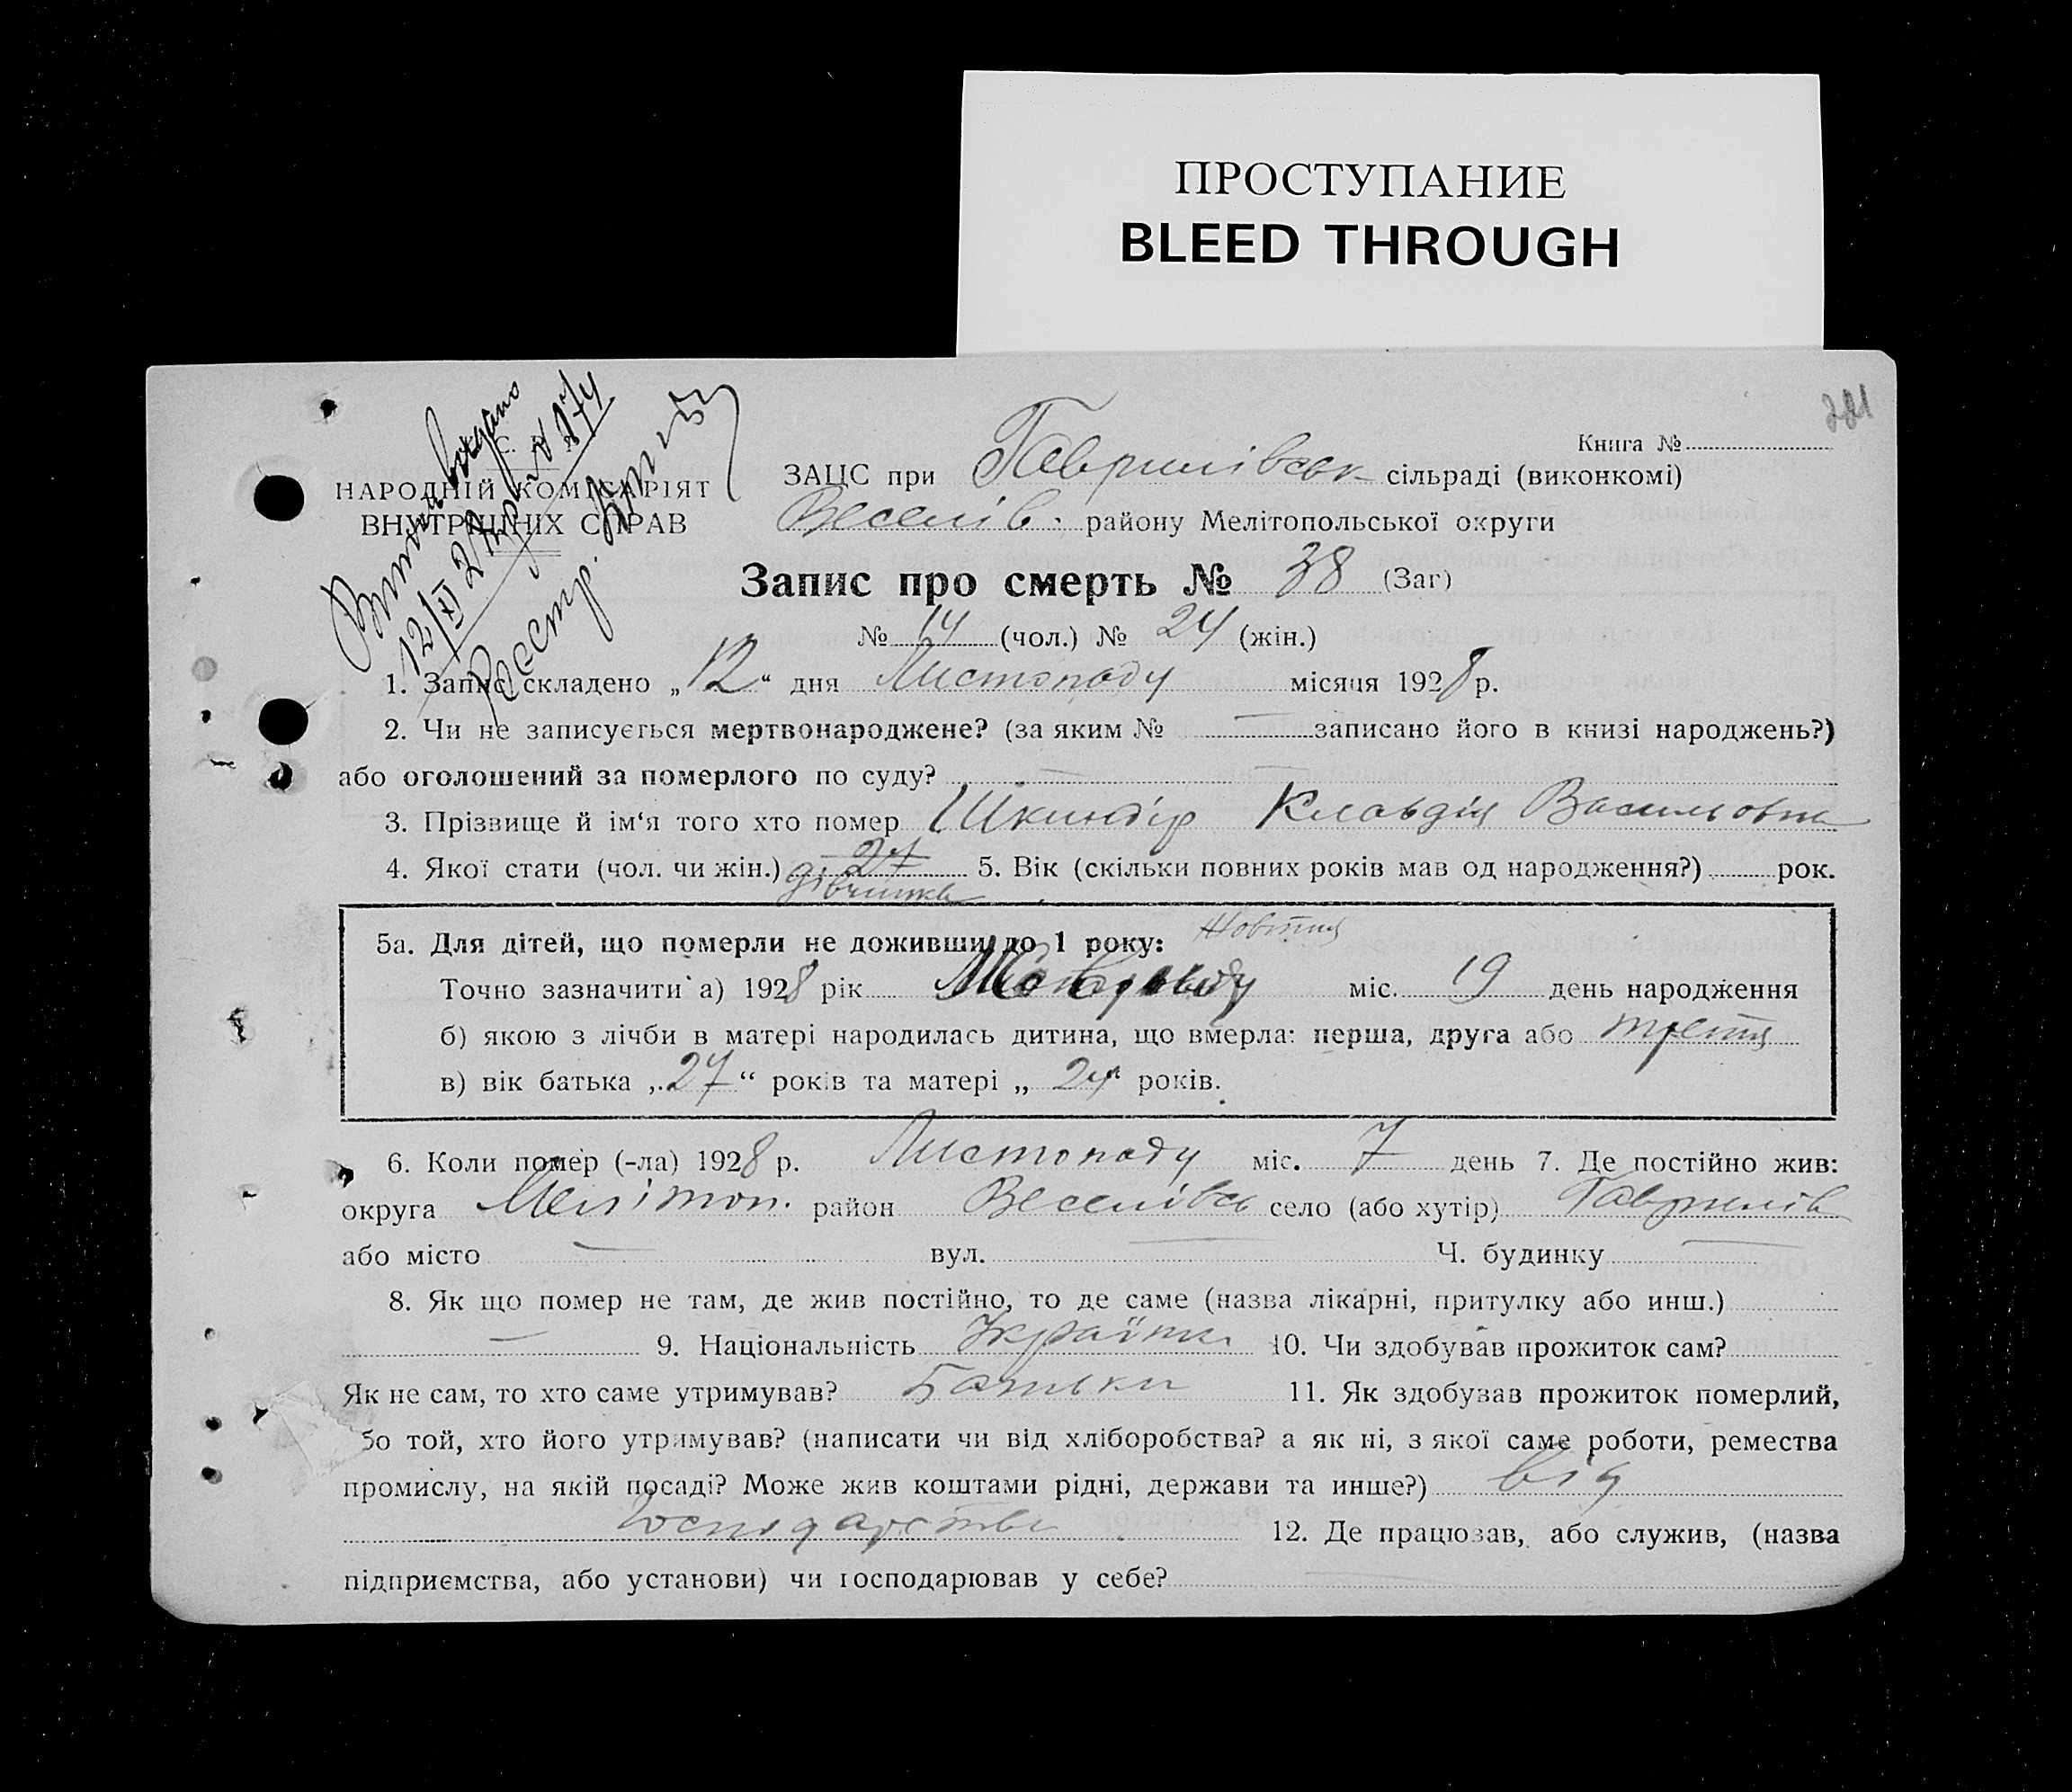 ПРОСТУПАНИЕ
BLEED THROUGH
281
Книга №
НАРОДНІЙ КОМІСАРІЯТ
ВНУТРІШНІХ СПРАВ
12/XI
Реєстр.
ЗАЦС при Гаврилівськ сільраді (виконкомі)
Веселів. району Мелітопольської округи
Запис про смерть № 38 (Заг)
№ 14 (чол.) № 24 (жін.)
1. Запис складено „12“ дня Листопаду місяця 1928 р.
2. Чи не записується мертвонароджене? (за яким № — записано його в книзі народжень?)
або оголошений за померлого по суду? — —
3. Прізвище й ім‘я того хто помер Шкиндір Клавдія Васильовна
4. Якої стати (чол. чи жін.) 27 дівчинка 5. Вік (скільки повних років мав од народження?) рок.
5а. Для дітей, що померли не доживши до 1 року: Жовтня
Точно зазначити а) 1928 рік міс. 19 день народження
б) якою з лічби в матері народилась дитина, що вмерла: перша, друга або третя
в) вік батька „27“ років та матері „24“ років.
6. Коли помер (-ла) 1928 р. Листопаду міс. 7 день 7. Де постійно жив:
округа Мелітоп. район Веселівсь село (або хутір) Гаврилів
або місто — вул. — Ч. будинку —
8. Як що помер не там, де жив постійно, то де саме (назва лікарні, притулку або инш.)
— 9. Національність Українк 10. Чи здобував прожиток сам?
Як не сам, то хто саме утримував? Батьки 11. Як здобував прожиток померлий,
бо той, хто його утримував? (написати чи від хліборобства? а як ні, з якої саме роботи, ремества
промислу, на якій посаді? Може жив коштами рідні, держави та инше?) від
господарства 12. Де працював, або служив, (назва
підприємства, або установи) чи господарював у себе? —